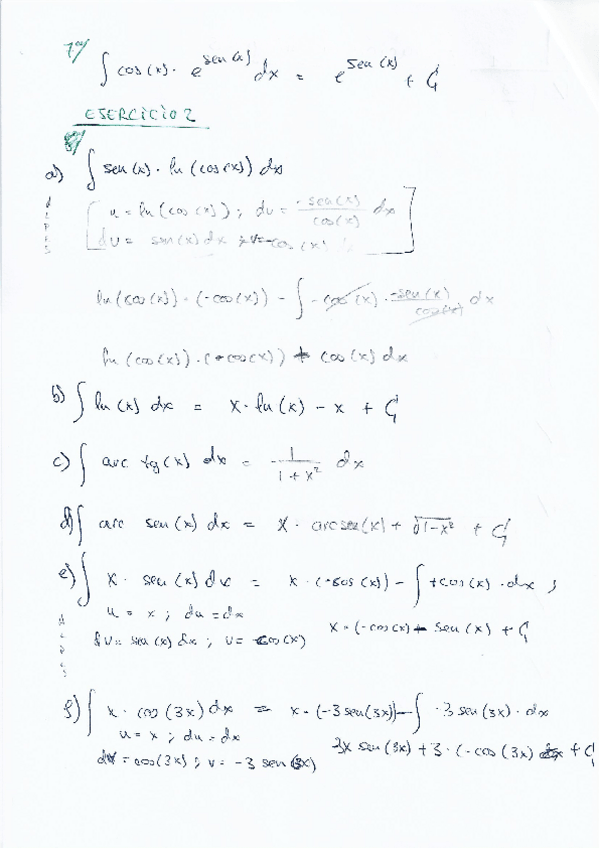 7º) ∫ cos(x) · e^sen(x) dx = e^sen(x) + C
EJERCICIO 2
a) ∫ sen(x) · ln(cos(x)) dx
u = ln(cos(x)); du = -sen(x)/cos(x) dx
dv = sen(x) dx; v = -cos(x)
ln(cos(x)) · (-cos(x)) - ∫ -cos(x) · -sen(x)/cos(x) dx
ln(cos(x)) · (-cos(x)) + cos(x) dx
b) ∫ ln(x) dx = x · ln(x) - x + C
c) ∫ arc tg(x) dx = 1/(1+x²) dx
d) ∫ arc sen(x) dx = x · arcsen(x) + √(1-x²) + C
e) ∫ x · sen(x) dx = x · (-cos(x)) - ∫ +cos(x) · dx ;
u = x ; du = dx
x · (-cos(x) + sen(x) + C
dv = sen(x) dx ; v = -cos(x)
f) ∫ x · cos(3x) dx = x · (-3 sen(3x)) - ∫ -3 sen(3x) · dx
u = x ; du = dx
3x sen(3x) + 3 · (-cos(3x) + C
dv = cos(3x) ; v = -3 sen(3x)